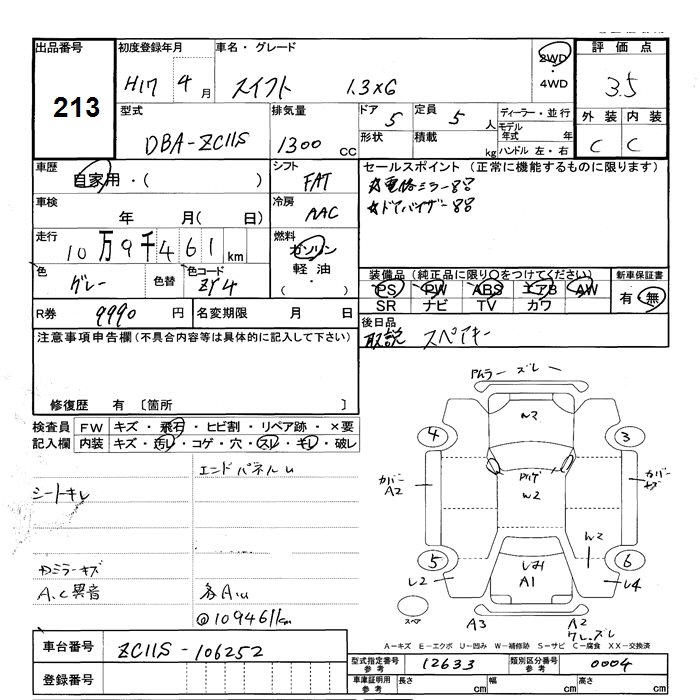 出品番号 初度登録年月 車名・グレード 評価点
213 H17 4月 スイフト 1.3×G 2WD 4WD 3.5
外装 内装
C C
型式 排気量 ドア 定員 ディーラー・並行
DBA-ZC11S 1300 CC 5 5人 モデル年式 年
形状 積載 kg ハンドル 左・右
車歴 シフト セールスポイント (正常に機能するものに限ります)
自家用・( ) FAT
☆電格ミラー
車検 冷房 ☆ドアバイザー
年 月( 日) AAC
走行 燃料
10万9千461km ガソリン
軽油
・( )
色 色替 色コード 装備品 (純正品に限り○をつけてください) 新車保証書
グレー ZY4 PS PW ABS エアB AW 有・無
SR ナビ TV カワ
R券 9990円 名変期限 月 日 後日品
取説 スペアキー
注意事項申告欄 (不具合内容等は具体的に記入して下さい)
修復歴 有 〔箇所 〕
検査員 FW キズ・飛石・ヒビ割・リペア跡・×要
記入欄 内装 キズ・汚レ・コゲ・穴・スレ・キレ・破レ
エンドパネルU
シートキレ
ミラーキズ
A.C異音 各A.U
@109461km
ズレ
W2
4 3
カバー A2
W2
カバー キズ
5 6
L2 A1 L4
スペア A3 A2
A－キズ E－エクボ U－凹み W－補修跡 S－サビ C－腐食 XX－交換済
車台番号 ZC11S-106252
登録番号
型式指定番号 参考 12633 類別区分番号 参考 0004
車庫証明用 参考 長さ cm 幅 cm 高さ cm